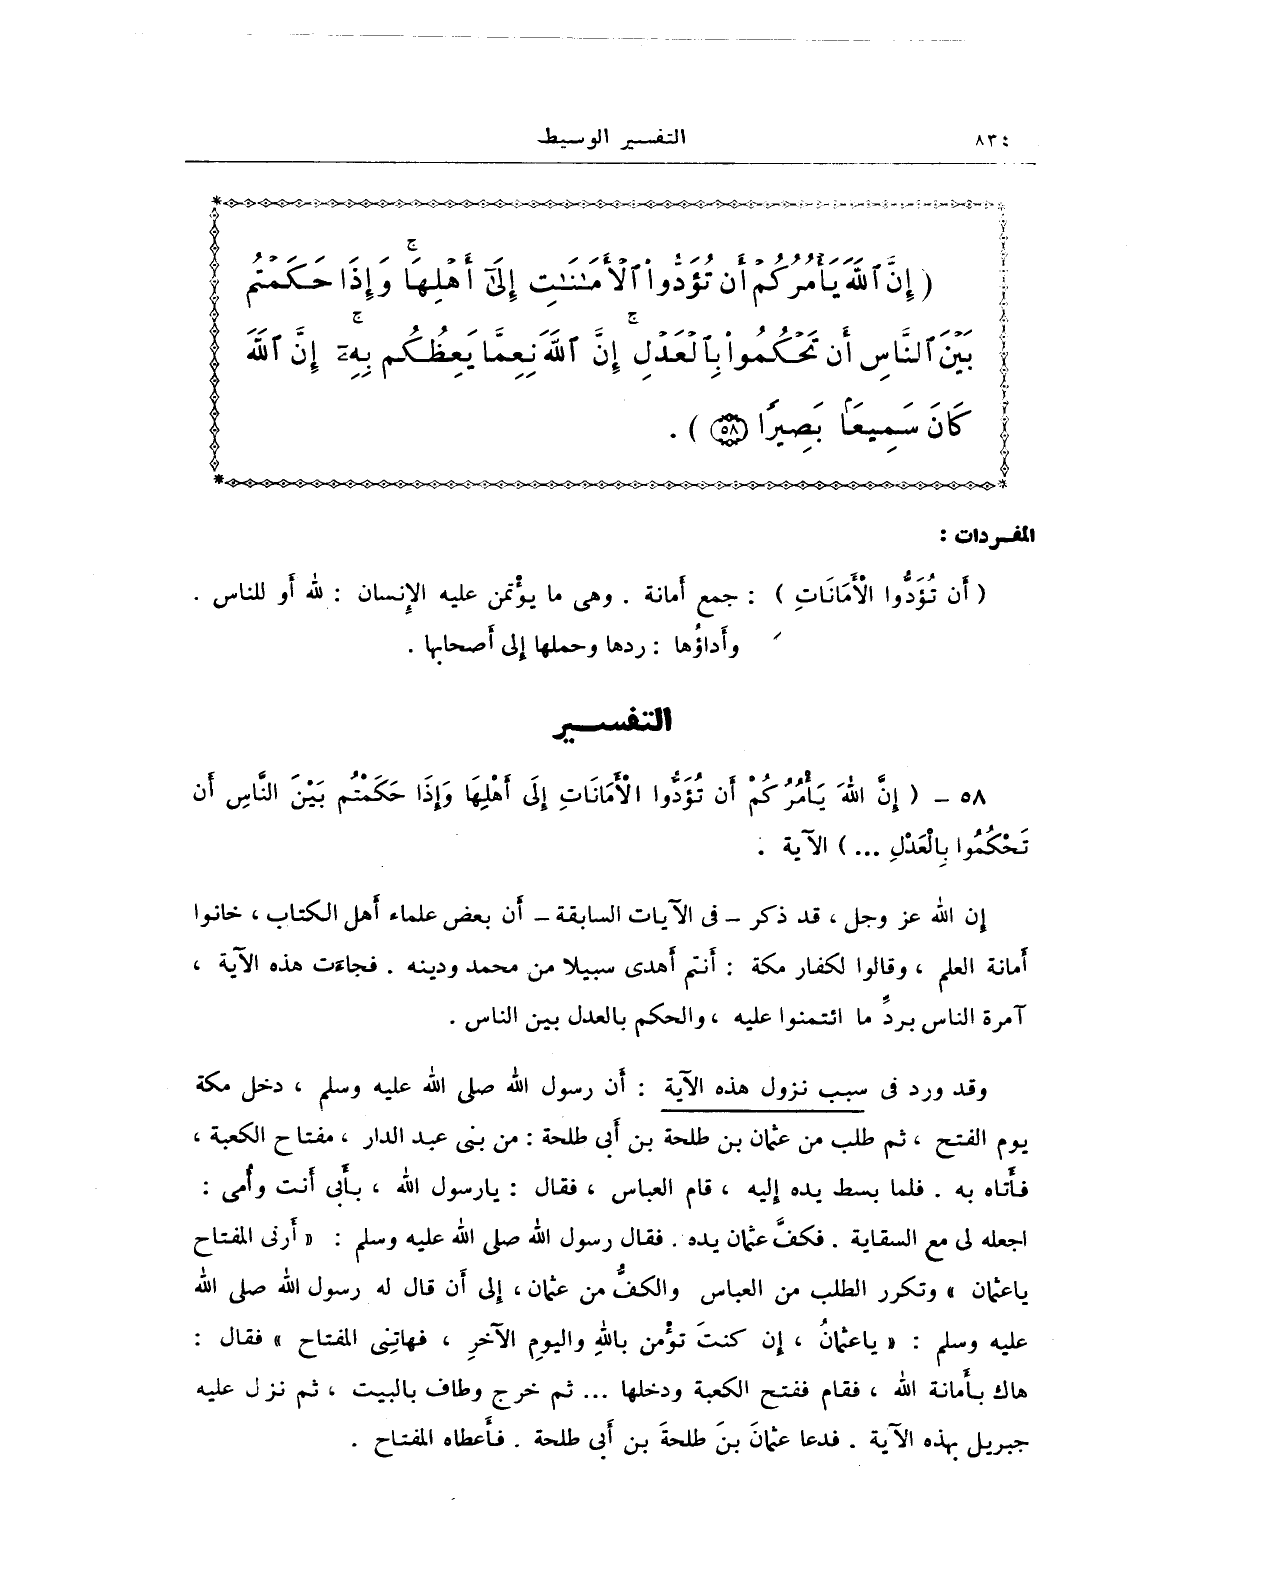 ٨٣٤
التفسير الوسيط
( إِنَّ ٱللَّهَ يَأْمُرُكُمْ أَن تُؤَدُّواْ ٱلْأَمَٰنَٰتِ إِلَىٰٓ أَهْلِهَاۚ وَإِذَا حَكَمْتُم
بَيْنَ ٱلنَّاسِ أَن تَحْكُمُواْ بِٱلْعَدْلِۚ إِنَّ ٱللَّهَ نِعِمَّا يَعِظُكُم بِهِۦٓۚ إِنَّ ٱللَّهَ
كَانَ سَمِيعَۢا بَصِيرًا ٥٨ ) .
المفـردات :
( أَن تُؤَدُّوا الْأَمَانَاتِ ) : جمع أَمانة . وهى ما يؤْتمن عليه الإِنسان : لله أَو للناس .
وأَداؤُها : ردها وحملها إِلى أَصحابها .
التفسـير
٥٨ – ( إِنَّ اللهَ يَأْمُرُكُمْ أَن تُؤَدُّوا الْأَمَانَاتِ إِلَى أَهْلِهَا وَإِذَا حَكَمْتُم بَيْنَ النَّاسِ أَن
تَحْكُمُوا بِالْعَدْلِ ... ) الآية .
إِن الله عز وجل ، قد ذكر – فى الآيات السابقة – أَن بعض علماء أَهل الكتاب ، خانوا
أَمانة العلم ، وقالوا لكفار مكة : أَنتم أَهدى سبيلا من محمد ودينه . فجاءت هذه الآية ،
آمرة الناس بردِّ ما ائتمنوا عليه ، والحكم بالعدل بين الناس .
وقد ورد فى سبب نزول هذه الآية : أَن رسول الله صلى الله عليه وسلم ، دخل مكة
يوم الفتح ، ثم طلب من عثمان بن طلحة بن أَبى طلحة : من بنى عبد الدار ، مفتاح الكعبة ،
فأَتاه به . فلما بسط يده إِليه ، قام العباس ، فقال : يارسول الله ، بأَبى أَنت وأُمى :
اجعله لى مع السقاية . فكفَّ عثمان يده . فقال رسول الله صلى الله عليه وسلم : « أَرنى المفتاح
ياعثمان » وتكرر الطلب من العباس والكفُّ من عثمان ، إِلى أَن قال له رسول الله صلى الله
عليه وسلم : « ياعثمانُ ، إِن كنتَ تؤْمن باللهِ واليومِ الآخرِ ، فهاتِنِى المفتاح » فقال :
هاك بأَمانة الله ، فقام ففتح الكعبة ودخلها ... ثم خرج وطاف بالبيت ، ثم نزل عليه
جبريل بهذه الآية . فدعا عثمانَ بنَ طلحةَ بن أَبى طلحة . فأَعطاه المفتاح .